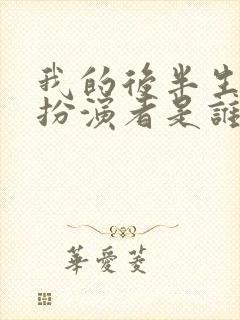 我的後半生
扮演者是誰
華愛菱